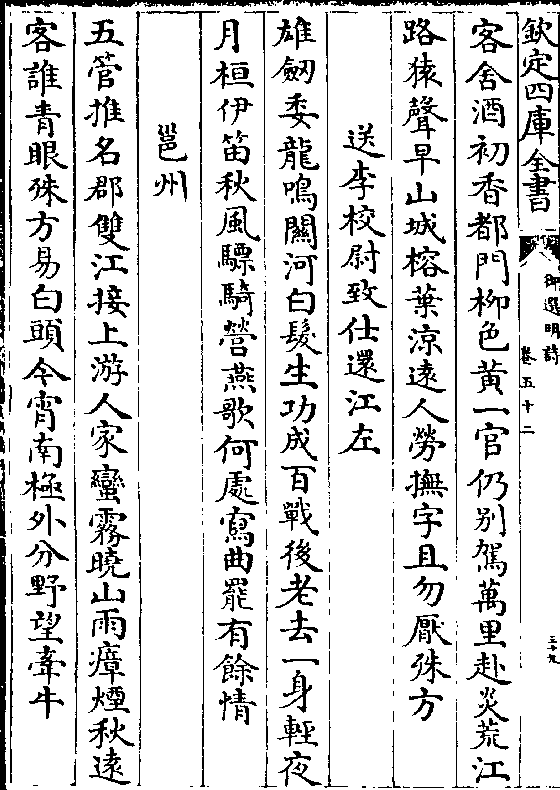 欽定四庫全書
御選明詩
卷五十二
三十九
客舍酒初香都門柳色黃一官仍别駕萬里赴炎荒江
路猿聲早山城榕葉涼遠人勞撫字且勿厭殊方
送李校尉致仕還江左
雄劒委龍鳴關河白髮生功成百戰後老去一身輕夜
月桓伊笛秋風驃騎營燕歌何處寫曲罷有餘情
邕州
五管推名郡雙江接上游人家蠻霧曉山雨瘴煙秋遠
客誰青眼殊方易白頭今宵南極外分野望牽牛